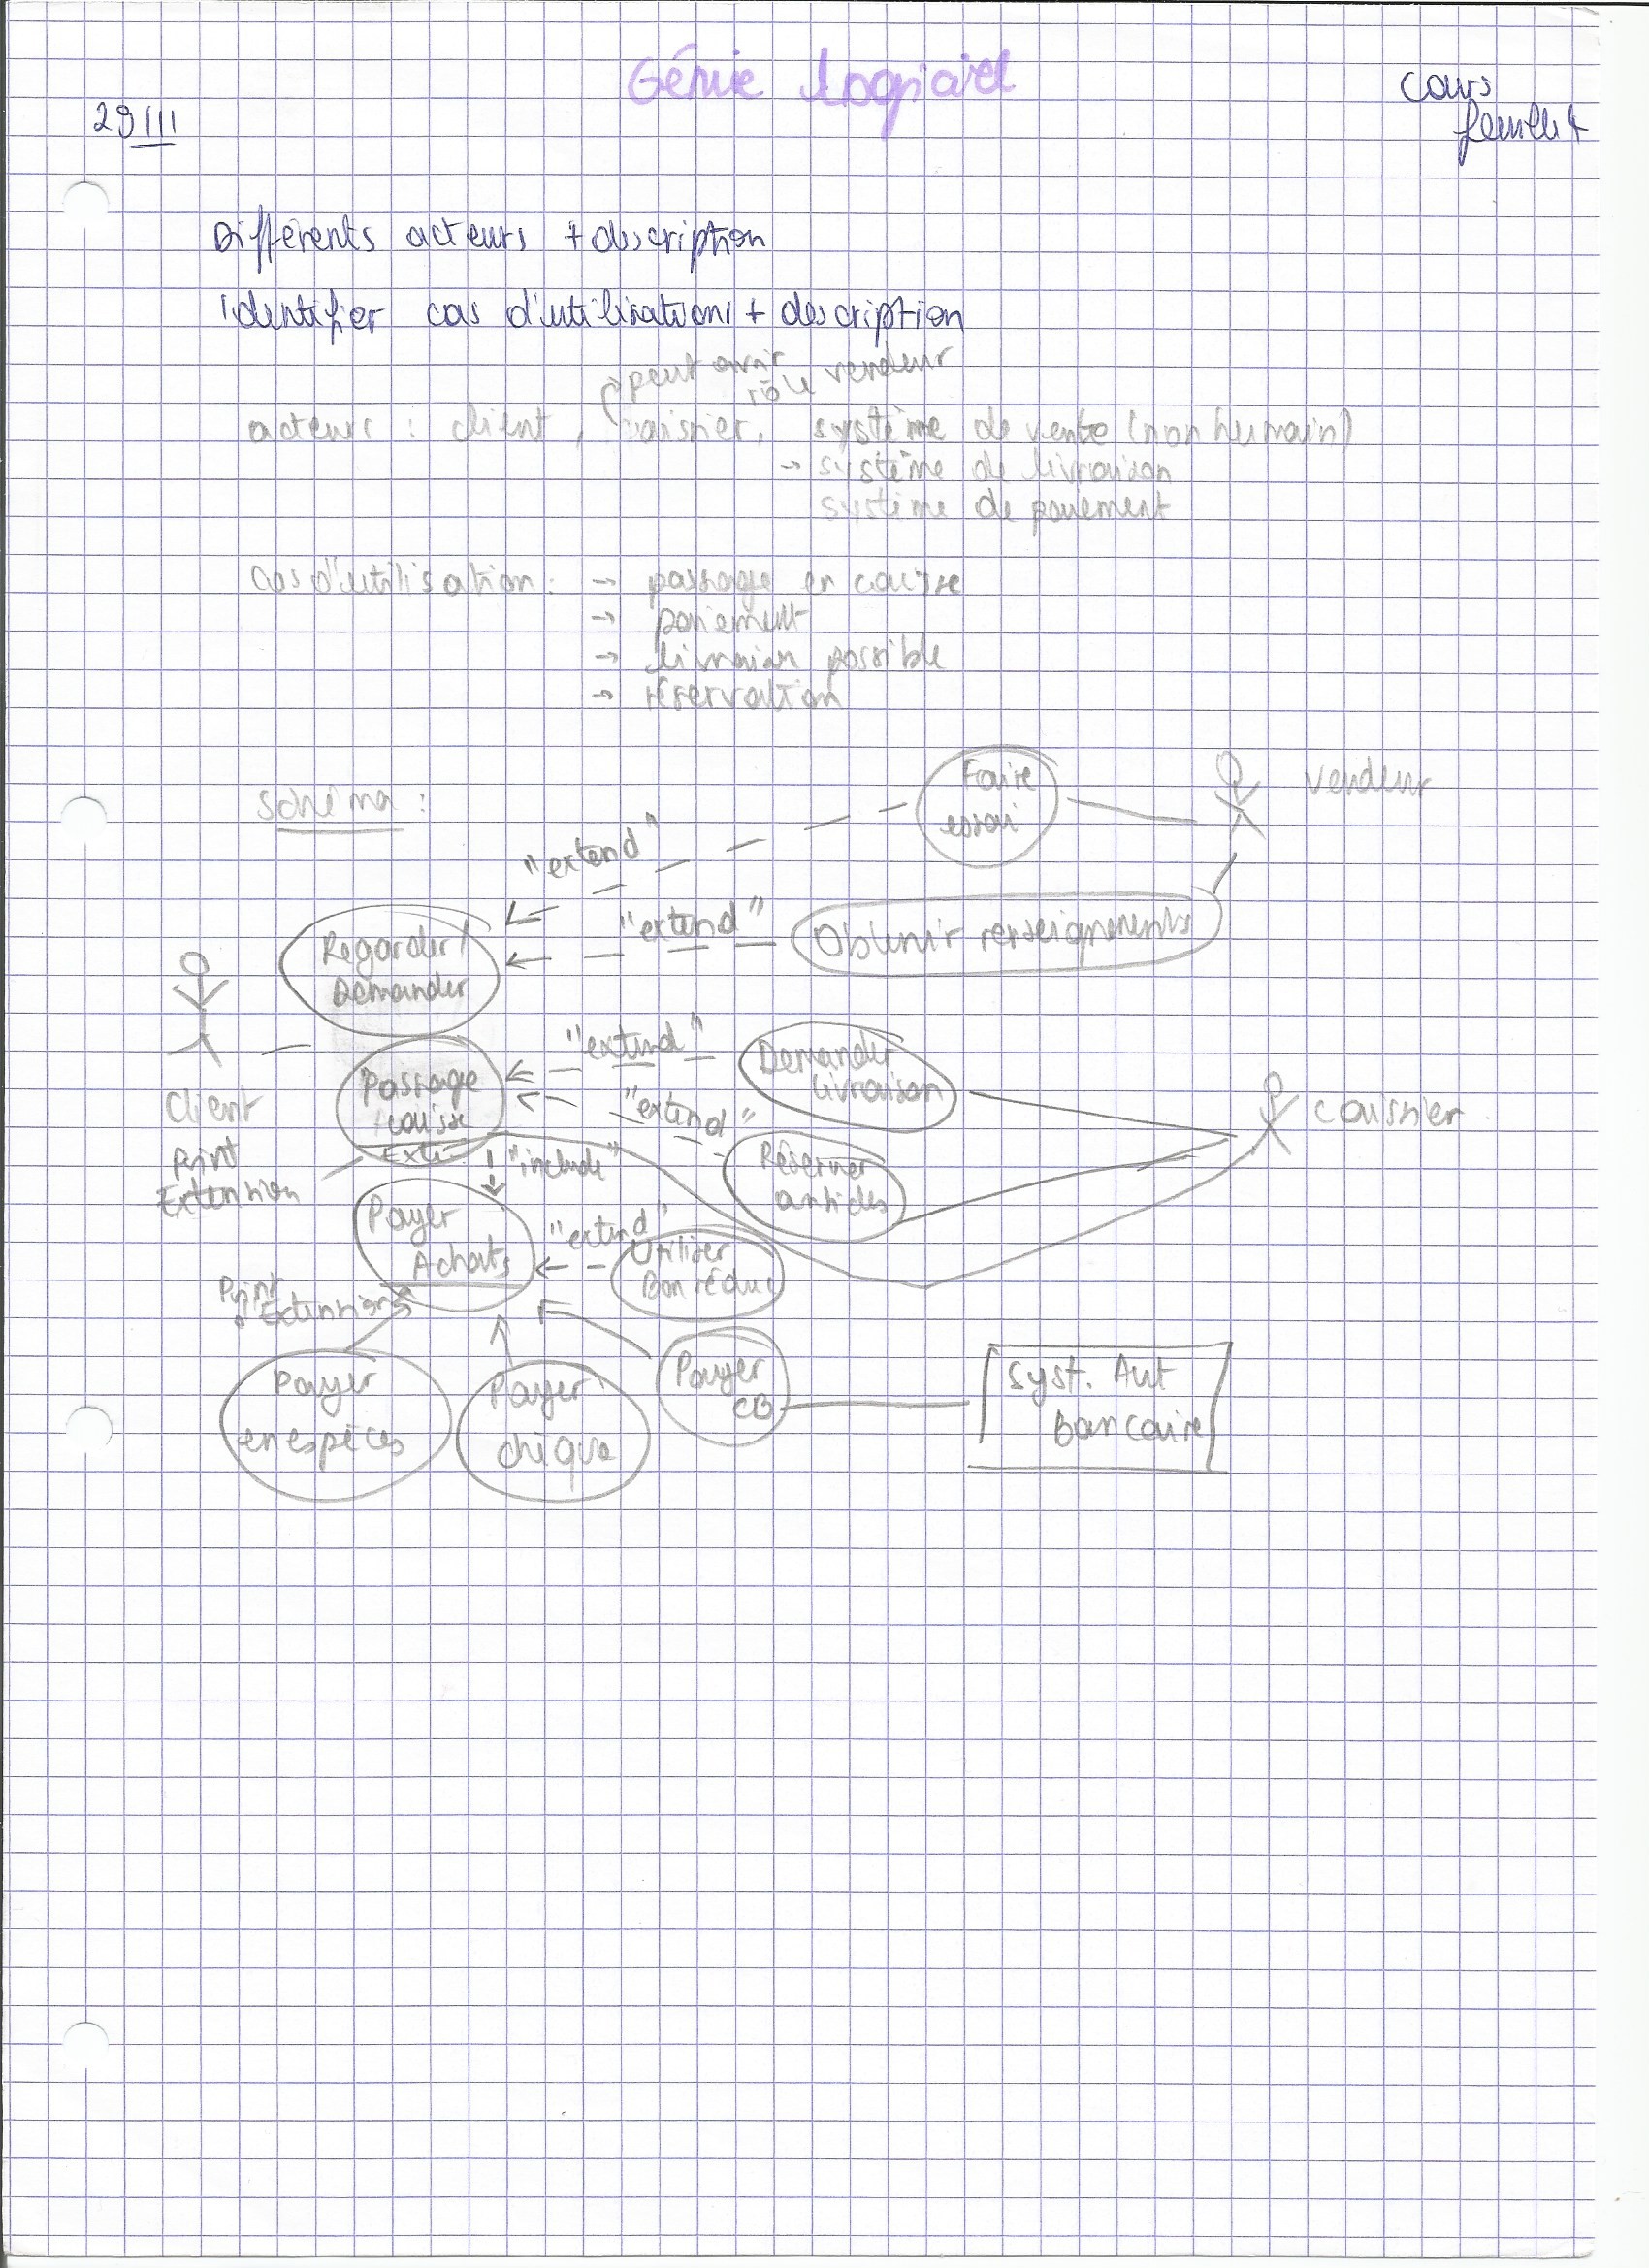 Génie Logiciel
cours
29 III
Différents acteurs + description
identifier cas d'utilisations + description
peut avoir rôle vendeur
acteurs : client, caissier, système de vente (non humain)
→ système de livraison
système de paiement
Cas d'utilisation : → passage en caisse
→ paiement
→ livraison possible
→ réservation
Schéma :
Faire
essai
Vendeur
"extend"
"extend"
Obtenir renseignements
Regarder/
Demander
"extend"
Demander
livraison
Client
Passage
caisse
"extend"
caissier
Point
Extension
Exte
"include"
Réserver
articles
Payer
Achats
"extend"
Utiliser
Bon réduc
Point
d'Extension
Payer
en espèces
Payer
chèque
Payer
CB
Syst. Aut
Bancaire